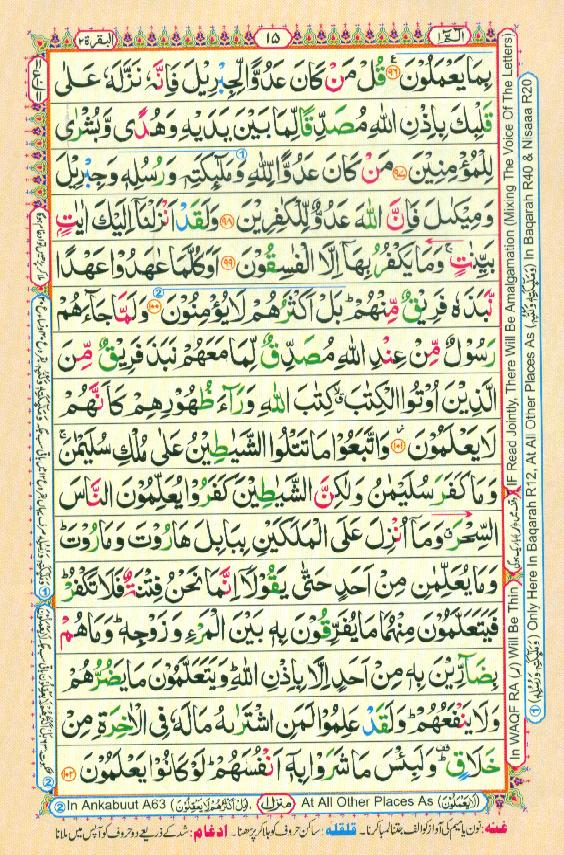 البقرة ٢
١٥
الٓمّٓ ١
بِمَا يَعْمَلُوْنَ ۝٩٦ قُلْ مَنْ كَانَ عَدُوًّا لِّجِبْرِيْلَ فَاِنَّهٗ نَزَّلَهٗ عَلٰى
قَلْبِكَ بِاِذْنِ اللّٰهِ مُصَدِّقًا لِّمَا بَيْنَ يَدَيْهِ وَهُدًى وَّبُشْرٰى
لِلْمُؤْمِنِيْنَ ۝٩٧ مَنْ كَانَ عَدُوًّا لِّلّٰهِ وَمَلٰٓئِكَتِهٖ وَرُسُلِهٖ وَجِبْرِيْلَ
وَمِيْكٰىلَ فَاِنَّ اللّٰهَ عَدُوٌّ لِّلْكٰفِرِيْنَ ۝٩٨ وَلَقَدْ اَنْزَلْنَاۤ اِلَيْكَ اٰيٰتٍۭ
بَيِّنٰتٍ ۚ وَمَا يَكْفُرُ بِهَاۤ اِلَّا الْفٰسِقُوْنَ ۝٩٩ اَوَكُلَّمَا عٰهَدُوْا عَهْدًا
نَّبَذَهٗ فَرِيْقٌ مِّنْهُمْ ؕ بَلْ اَكْثَرُهُمْ لَا يُؤْمِنُوْنَ ۝١٠٠ وَلَمَّا جَآءَهُمْ
رَسُوْلٌ مِّنْ عِنْدِ اللّٰهِ مُصَدِّقٌ لِّمَا مَعَهُمْ نَبَذَ فَرِيْقٌ مِّنَ
الَّذِيْنَ اُوْتُوا الْكِتٰبَ ۙۗ كِتٰبَ اللّٰهِ وَرَآءَ ظُهُوْرِهِمْ كَاَنَّهُمْ
لَا يَعْلَمُوْنَ ۝١٠١ وَاتَّبَعُوْا مَا تَتْلُوا الشَّيٰطِيْنُ عَلٰى مُلْكِ سُلَيْمٰنَ ۚ
وَمَا كَفَرَ سُلَيْمٰنُ وَلٰكِنَّ الشَّيٰطِيْنَ كَفَرُوْا يُعَلِّمُوْنَ النَّاسَ
السِّحْرَ ۗ وَمَاۤ اُنْزِلَ عَلَى الْمَلَكَيْنِ بِبَابِلَ هَارُوْتَ وَمَارُوْتَ ؕ
وَمَا يُعَلِّمٰنِ مِنْ اَحَدٍ حَتّٰى يَقُوْلَاۤ اِنَّمَا نَحْنُ فِتْنَةٌ فَلَا تَكْفُرْ ؕ
فَيَتَعَلَّمُوْنَ مِنْهُمَا مَا يُفَرِّقُوْنَ بِهٖ بَيْنَ الْمَرْءِ وَزَوْجِهٖ ؕ وَمَا هُمْ
بِضَآرِّيْنَ بِهٖ مِنْ اَحَدٍ اِلَّا بِاِذْنِ اللّٰهِ ؕ وَيَتَعَلَّمُوْنَ مَا يَضُرُّهُمْ
وَلَا يَنْفَعُهُمْ ؕ وَلَقَدْ عَلِمُوْا لَمَنِ اشْتَرٰىهُ مَا لَهٗ فِى الْاٰخِرَةِ مِنْ
خَلَاقٍ ؕ وَلَبِئْسَ مَا شَرَوْا بِهٖۤ اَنْفُسَهُمْ ؕ لَوْ كَانُوْا يَعْلَمُوْنَ ۝١٠٢
② In Ankabuut A63 (بَلْ اَكْثَرُهُمْ لَا يَعْقِلُوْنَ) منزل ١ At All Other Places As (لَا يَعْلَمُوْنَ)
غنه: نون یا میم کی آواز کو الف جتنا لمبا کرنا۔ قلقله: ساکن حروف کو ہلا کر پڑھنا۔ ادغام: شد کے ذریعے دو حروف کو آپس میں ملانا
In WAQF RA (ر) Will Be Thin IF Read Jointly, There Will Be Amalgamation (Mixing The Voice Of The Letters)
① (وَمَلٰٓئِكَتِهٖ وَرُسُلِهٖ) Only Here In Baqarah R12, At All Other Places As (وَمَلٰٓئِكَتِهٖ وَكُتُبِهٖ) In Baqarah R40 & Nisaaa R20